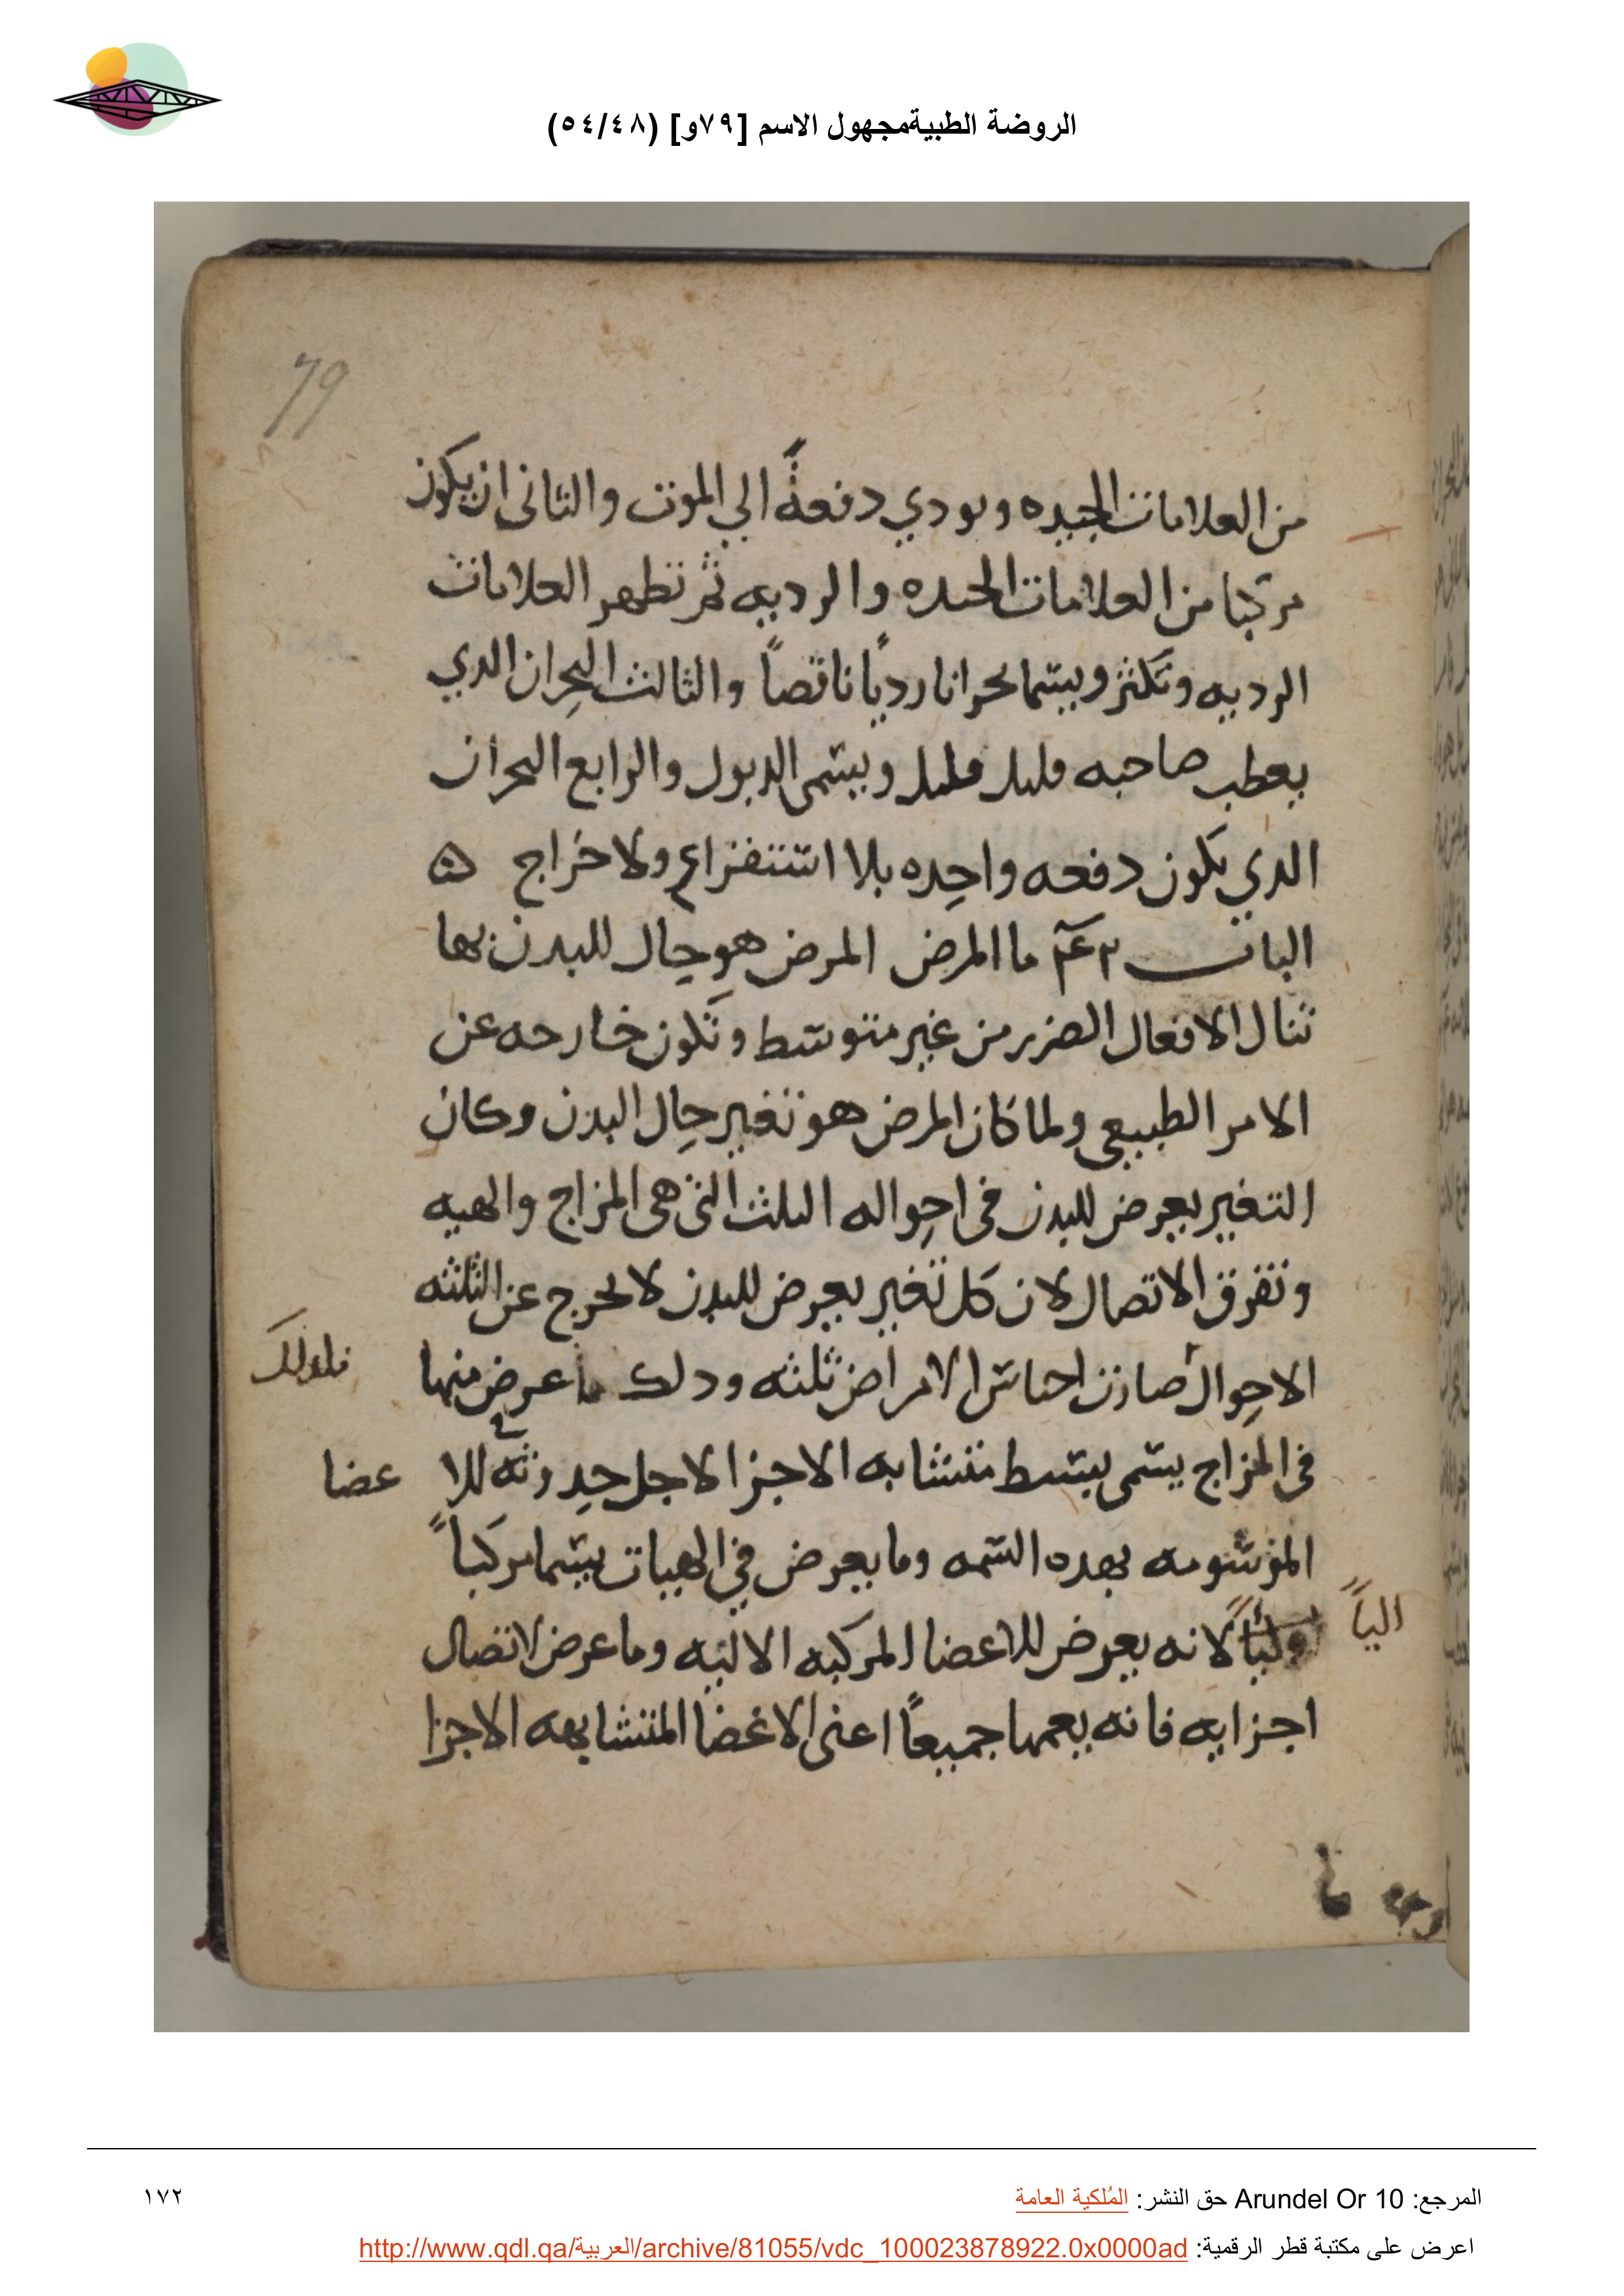 الروضة الطبيةمجهول الاسم [٧٩و] (٥٤/٤٨)
79
من العلامات الجيده ويودي دفعةً الي الموت والثانى ان يكون
مركبا من العلامات الجيده والرديه ثم تظهر العلامات
الرديه وتكثر ويسما بحرانا رديًا ناقصًا والثالث البحران الدي
يعطب صاحبه قليل قليل ويسمى الدبول والرابع البحران
الدي يكون دفعه واحده بلا استفراع ولا خراج ه
الباب ما المرض المرض هو حال للبدن بها
تنال الافعال الضرر من غير متوسط وتكون خارجه عن
الامر الطبيعى ولما كان المرض هو تغير حال البدن وكان
التغير يعرض للبدن فى احواله الثلث التى هى المزاج والهيه
وتفرق الاتصال لان كل تغير يعرض للبدن لا يخرج عن الثلثه
الاحوال صارت اجناس الامراض ثلثه ودلك ما عرض منها
فلدلك
فى المزاج يسمى بسيط متشابه الاجزا لاجل حدوثه للا عضا
الموسومه بهده السمه وما يعرض في الهيات يسما مركباً
اليًا
لانه يعرض للاعضا المركبه الاليه وما عرض لاتصال
اجزايه فانه يعمها جميعًا اعنى الاعضا المتشابهه الاجزا
المرجع: Arundel Or 10 حق النشر: المُلكية العامة
١٧٢
اعرض على مكتبة قطر الرقمية: http://www.qdl.qa/العربية/archive/81055/vdc_100023878922.0x0000ad